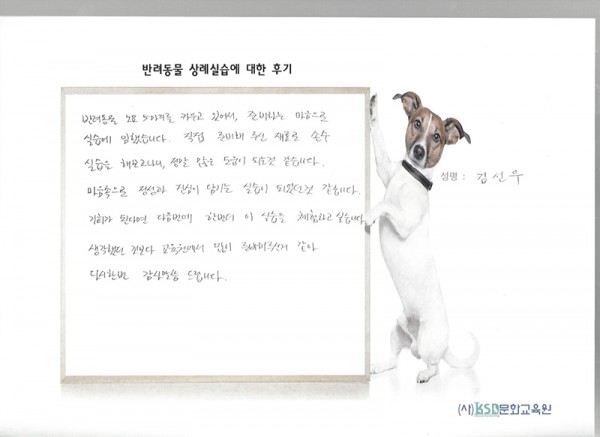 반려동물 상례실습에 대한 후기
반려동물 노묘 도아지를 키우고 있어서, 준비하는 마음으로
실습에 임했습니다. 직접 준비해 주신 재료로 손수
실습을 해보고나니, 정말 많은 도움이 되는것 같습니다.
마음속으로 정성과 진심이 담기는 실습이 되었던것 같습니다.
기회가 된다면 다음번에 한번더 이 실습을 체험하고 싶습니다.
생각했던 것보다 교육원에서 많이 준비해주신거 같아
다시한번 감사말씀 드립니다.
성명 : 김선우
(사)KSD문화교육원